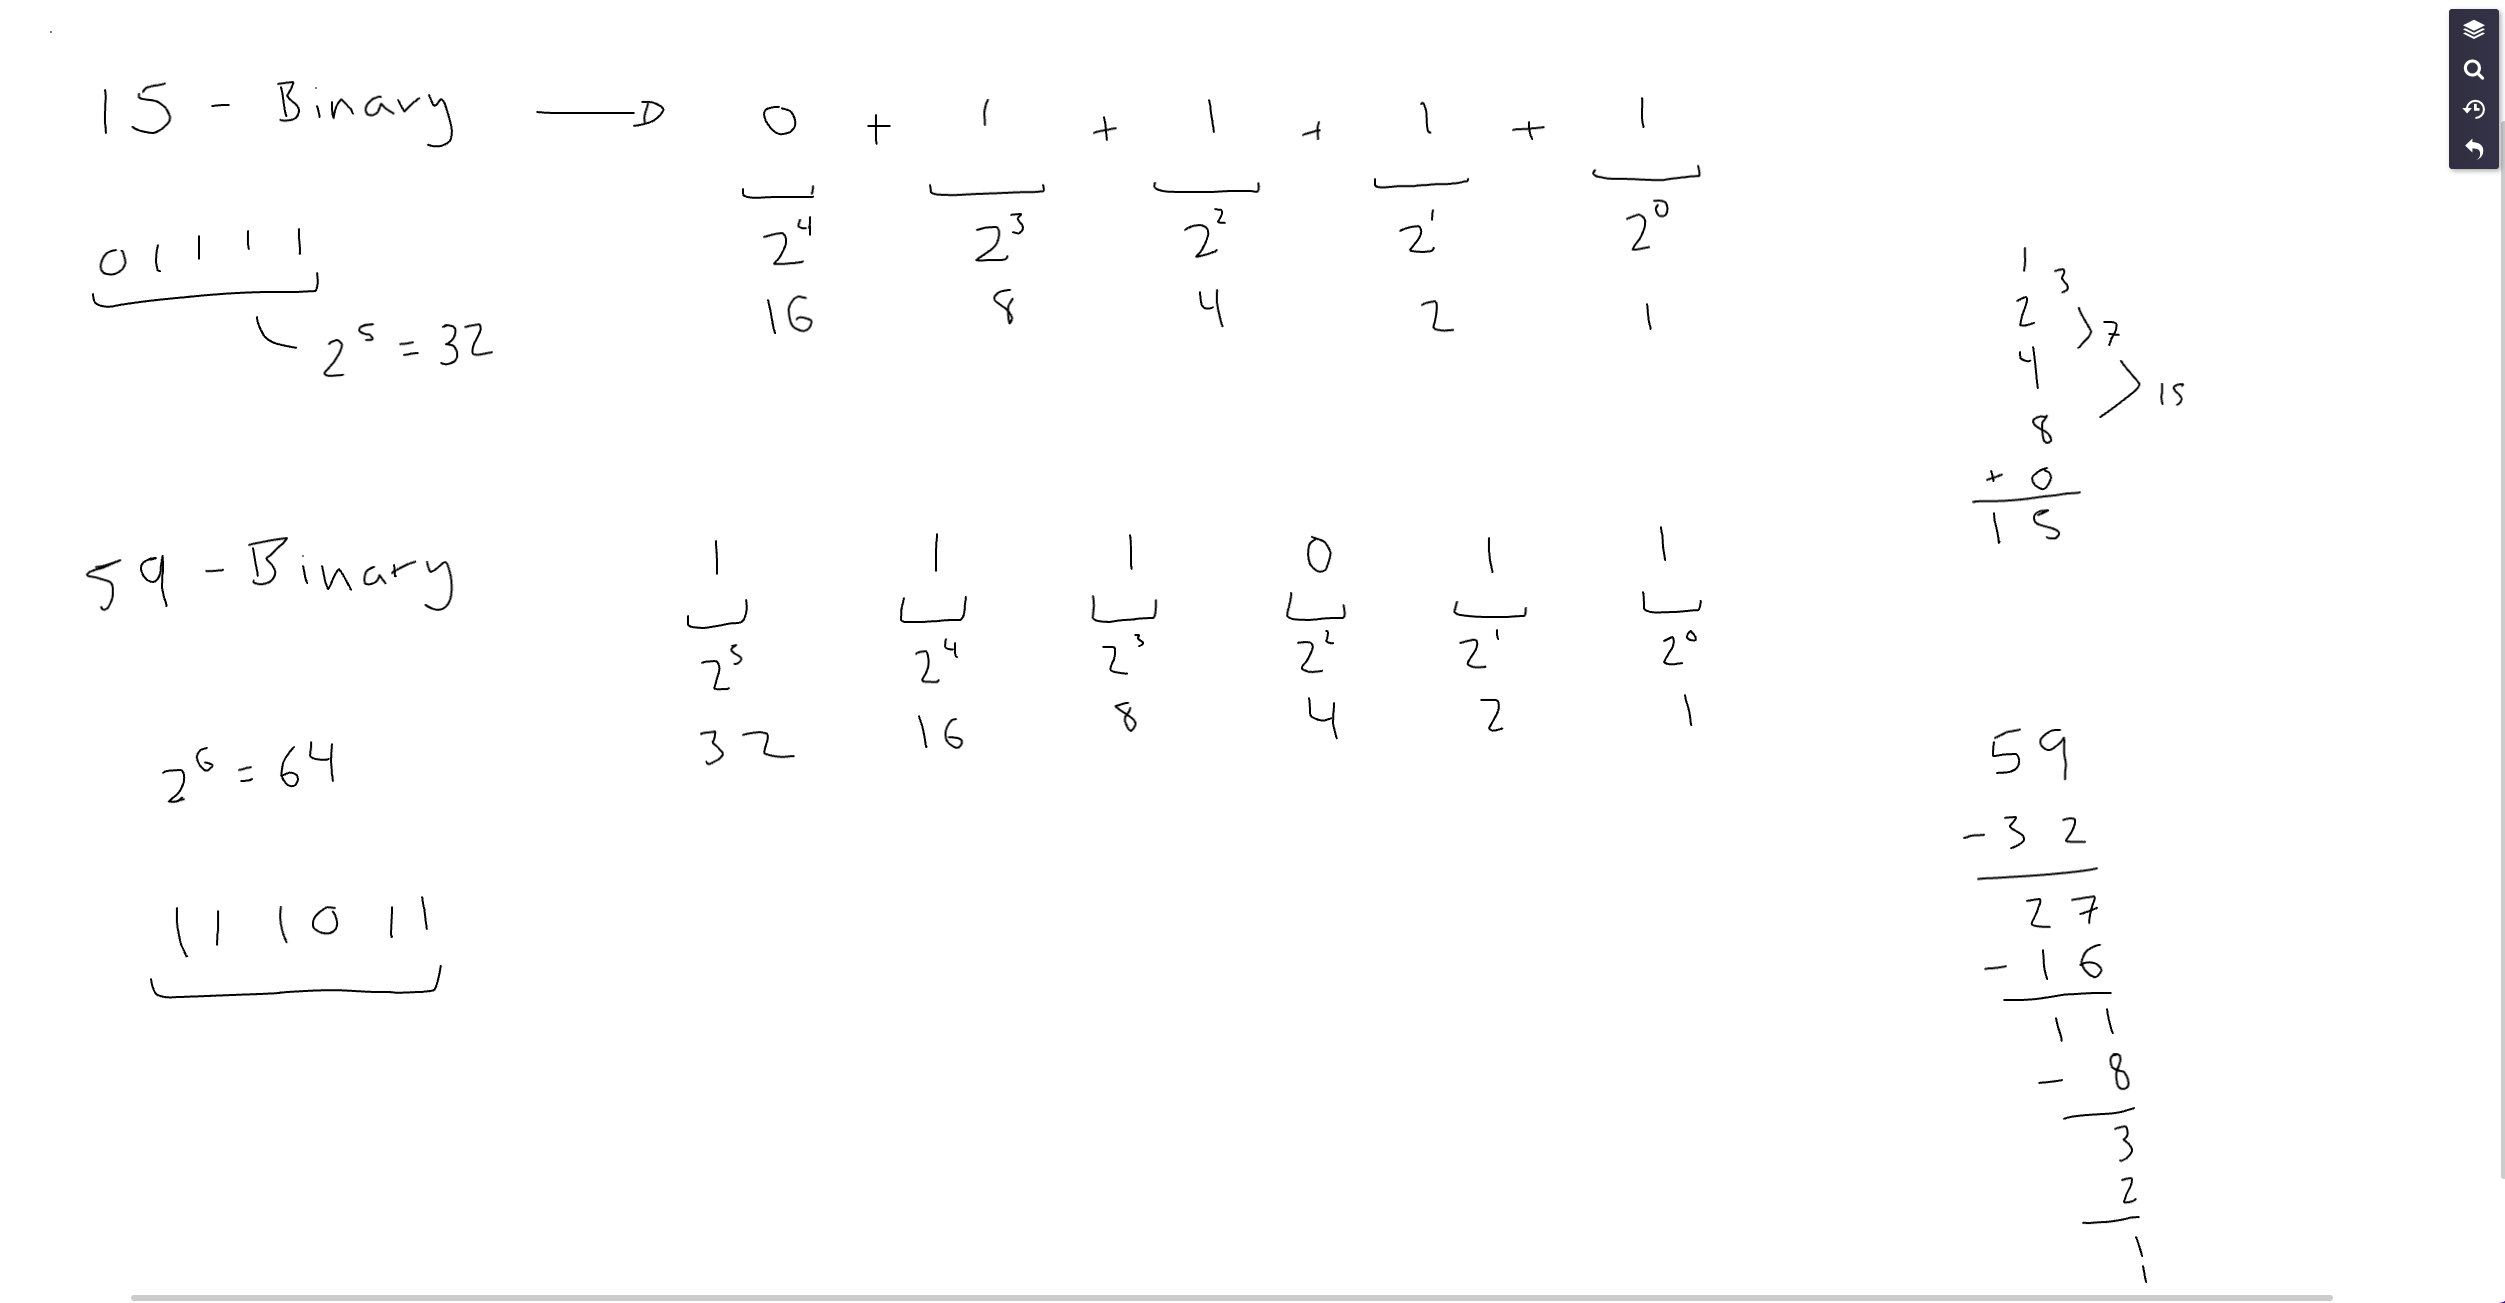 15 - Binary → 0 + 1 + 1 + 1 + 1
2^4 2^3 2^2 2^1 2^0
16 8 4 2 1
01111
2^5 = 32
1
2 3
4 > 7
8 > 15
+ 0
15
59 - Binary 1 1 1 0 1 1
2^5 2^4 2^3 2^2 2^1 2^0
32 16 8 4 2 1
2^6 = 64
111011
59
- 32
27
- 16
11
- 8
3
2
1
1